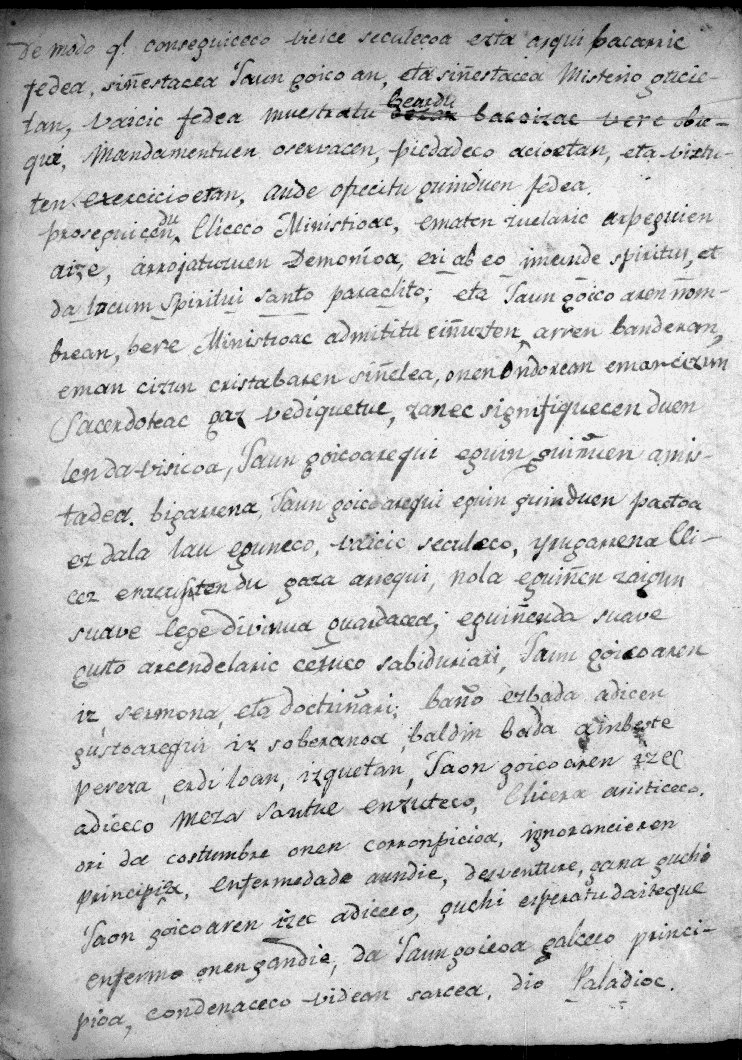 De modo q.e conseguiceco vicice seculecoa ezta asqui bacarric
fedea, siñestacea Taun goicoan, eta siñestacea Misterio gucie-
tan, vaicic fedea muestratu beardu bacoizac vere obre-
qui, Mandamentuen oservacen, piedadeco acioetan, eta virtu-
ten exercicioetan, aude ofrecitu guinduen fedea.
prosegui cen du, Eliceco Ministroac, ematen zuelaric arpeguien
aize, arrojatuzuen Demonioa, exi ab eo inmunde spiritus, et
da locum Spiritui santo paraclito; eta Taun goicoaren nom-
brean, bere Ministroac admititu ciñuzten arren banderan,
eman cizun cristabaren siñelea, onen ondorean eman cizun
Sacerdoteac gaz vediquetue, zanec significecen duen
lendavisicoa, Taun goicoarequi eguin guinduen amis-
tadea. bigarrena, Taun goicoarequi eguin guinduen pactoa
ez dala lau eguneco, vaicic seculeco, yrugarrena Eli-
cez eracusten du gaza arrequi, nola eguiñen zaigun
suave lege divinua guardacea; eguiñenda suave
gusto arcendelaric ceruco sabiduriari, Taun goicoaren
iz, sermona, eta doctriñari; baño ezbada adicen
gustoarequi iz soberanoa, baldin bada ainbeste
pereza, erdi loan, izquetan, Taon goicoaren izec
adiceco meza santue enzuteco, Elicera aristiceco.
ori da costumbre onen corronpicioa, ignorancieren
principiza, Enfermedade aundie, desventure, gana guchi
Taon goicoaren izec adiceco, guchi esperatu daiteque
enfermo onengandic, da Taungoicoa galceco princi-
pioa, condenaceco videan sarcea. dio Paladioc.